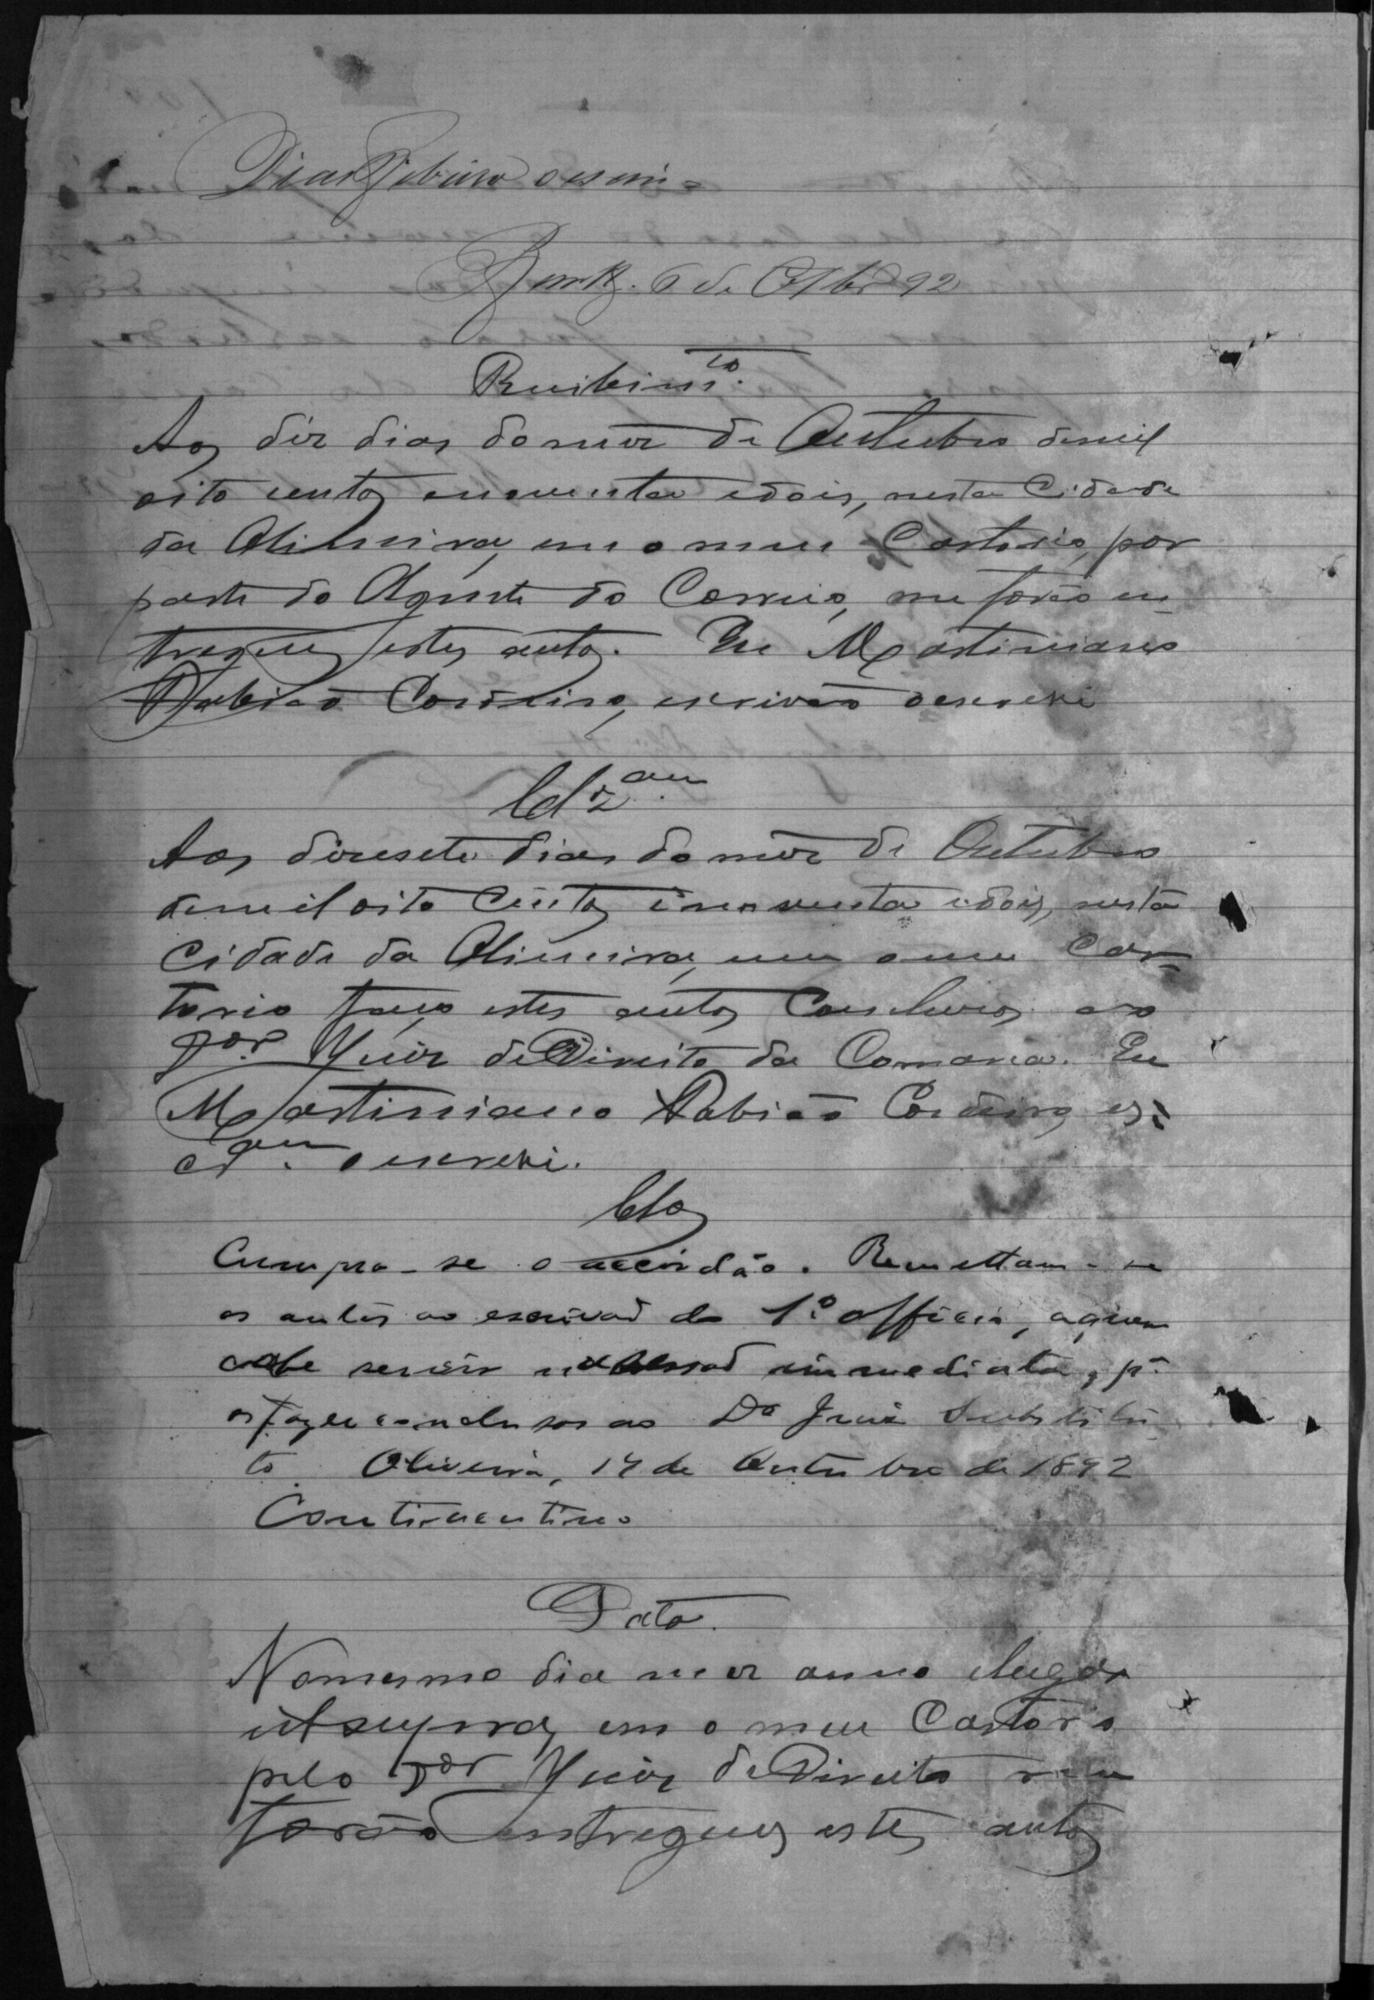 Dias Ribeiro o escrevi
6 de 92
Recibim.to
Aos dez dias do mez de Outubro de mil
oito centos e noventa e dois, nesta Cidade
da Oliveira, em o meu Cartorio, por
parte do Agente do Correio, me forão en
tregues estes autos. Eu Martiniano
Rabião Cordeiro, escrivão o escrevi
Cl.zam
Aos desesete dias do mez de Outubro
de mil oito centos e noventa e dois, nesta
Cidade da Oliveira, em o meu Car-
torio faço estes autos Conclusos ao
Dor Juiz de Direito da Comarca. Eu
Martiniano Rabião Cordeiro es-
cr.am o escrevi.
Clos
Cumpra-se o accordão. Remettam-se
os autos ao escrivão do 1.º officio, a quem
cabe servir immediata, p.a
os fazer conclusos ao Dr Juiz Substitu
to Oliveira, 17 de Outubro de 1892
Continentino
Data
No mesmo dia mez anno e lugar
ut supra, em o meu Cartorio
pelo Dor Juiz de Direito me
forão entregues estes autos